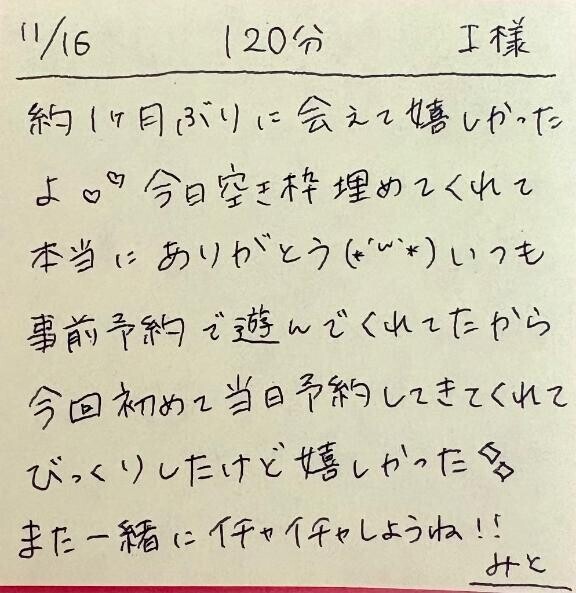 11/16 120分 I様
約1ヶ月ぶりに会えて嬉しかった
よ♡♡ 今日空き枠埋めてくれて
本当にありがとう(*´ω`*)いつも
事前予約で遊んでくれてたから
今回初めて当日予約してきてくれて
びっくりしたけど嬉しかった
また一緒にイチャイチャしようね!!
みと